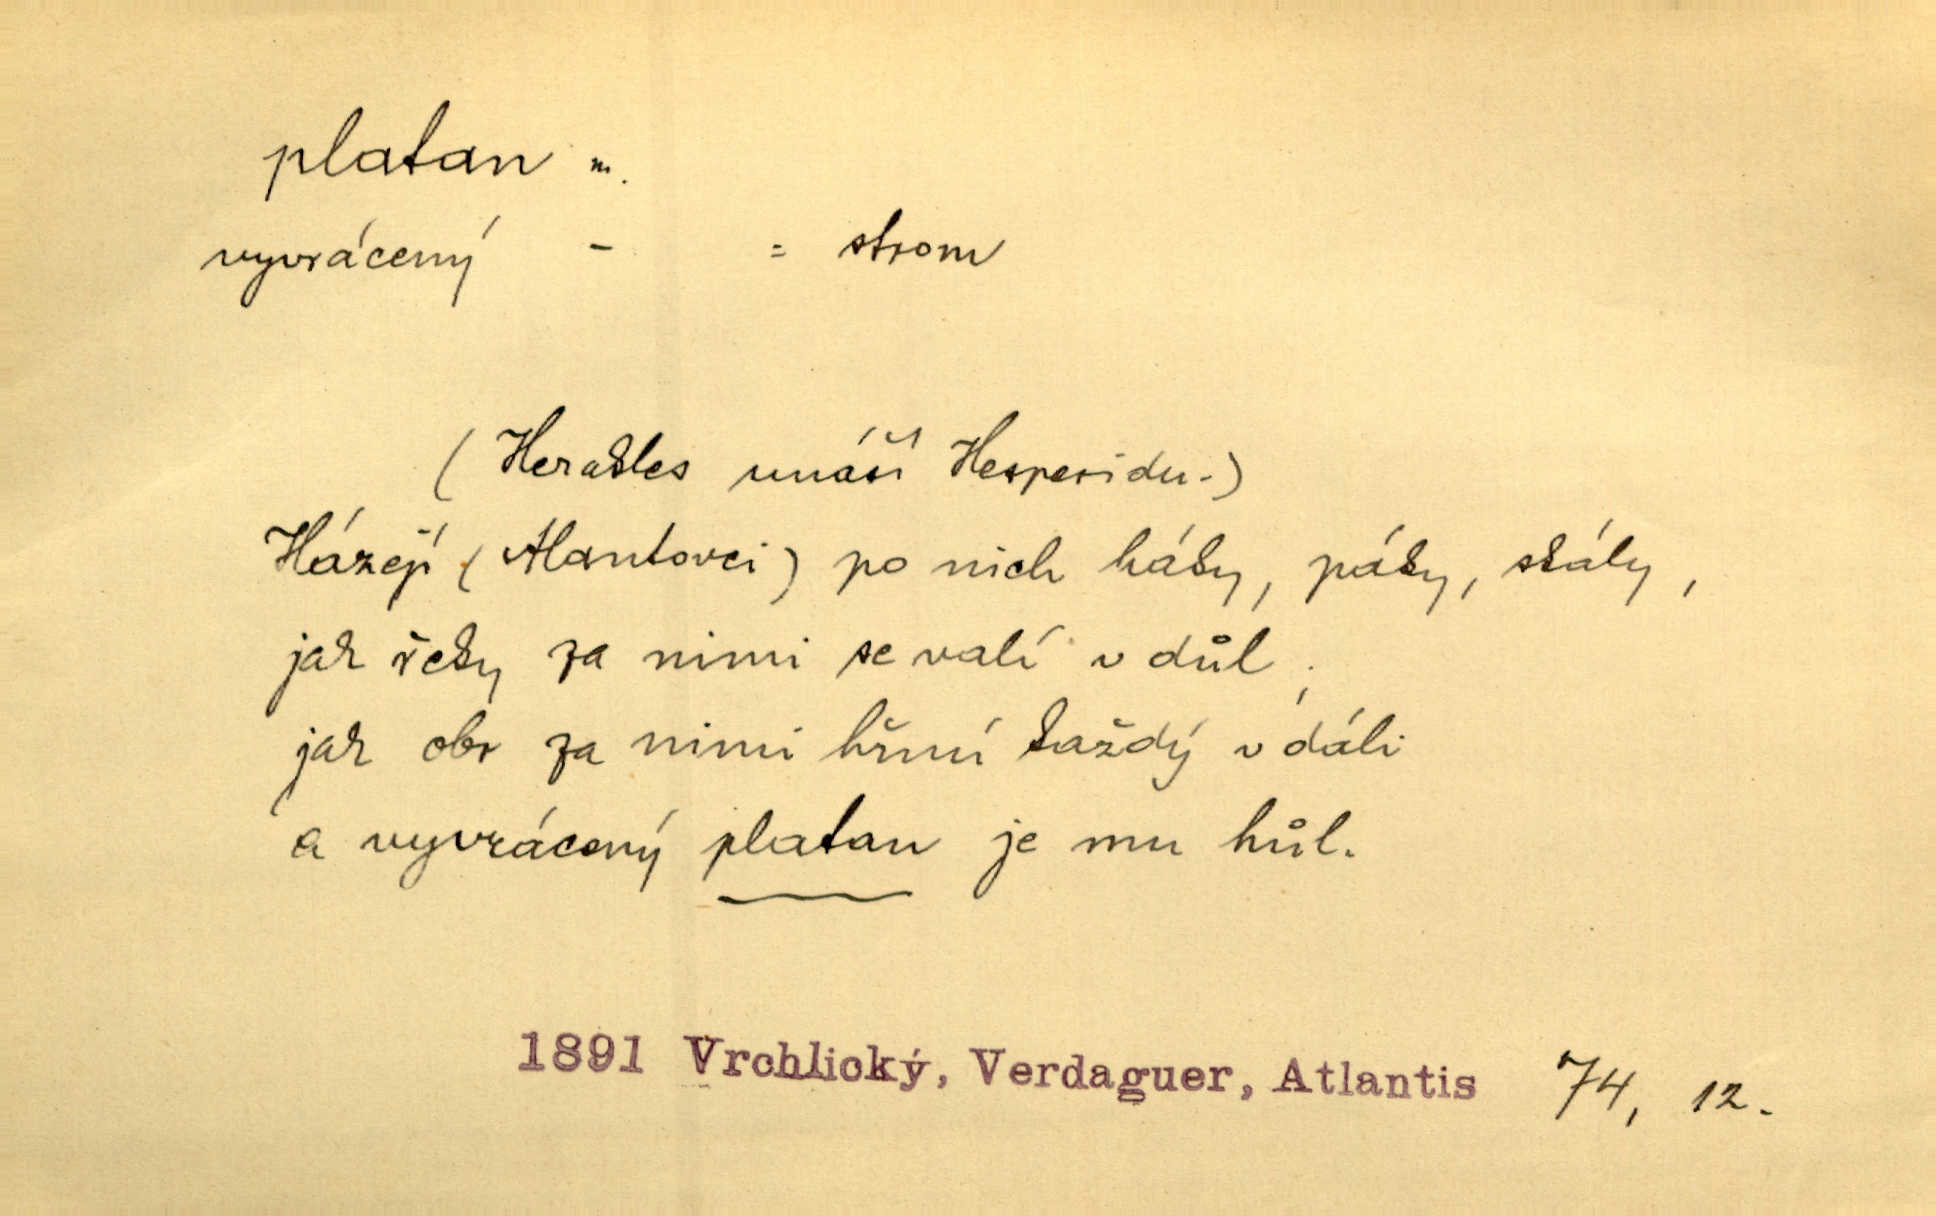 platan m.
vyvrácený - = strom
(Herakles unáší Hesperidu.)
Házejí (Atlantovci) po nich háky, páky, skály,
jak řeky za nimi se valí v důl,
jak obr za nimi hřmí každý v dáli
a vyvrácený platan je mu hůl.
1891 Vrchlický, Verdaguer, Atlantis 74, 12.